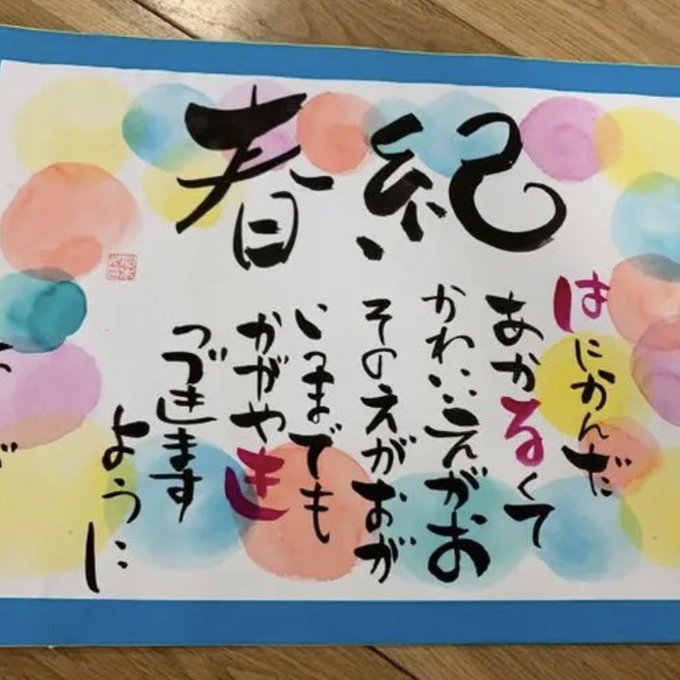 春紀
はにかんだ
あかるくて
かわいいえがお
そのえがおが
いつまでも
かがやき
つづきます
ように